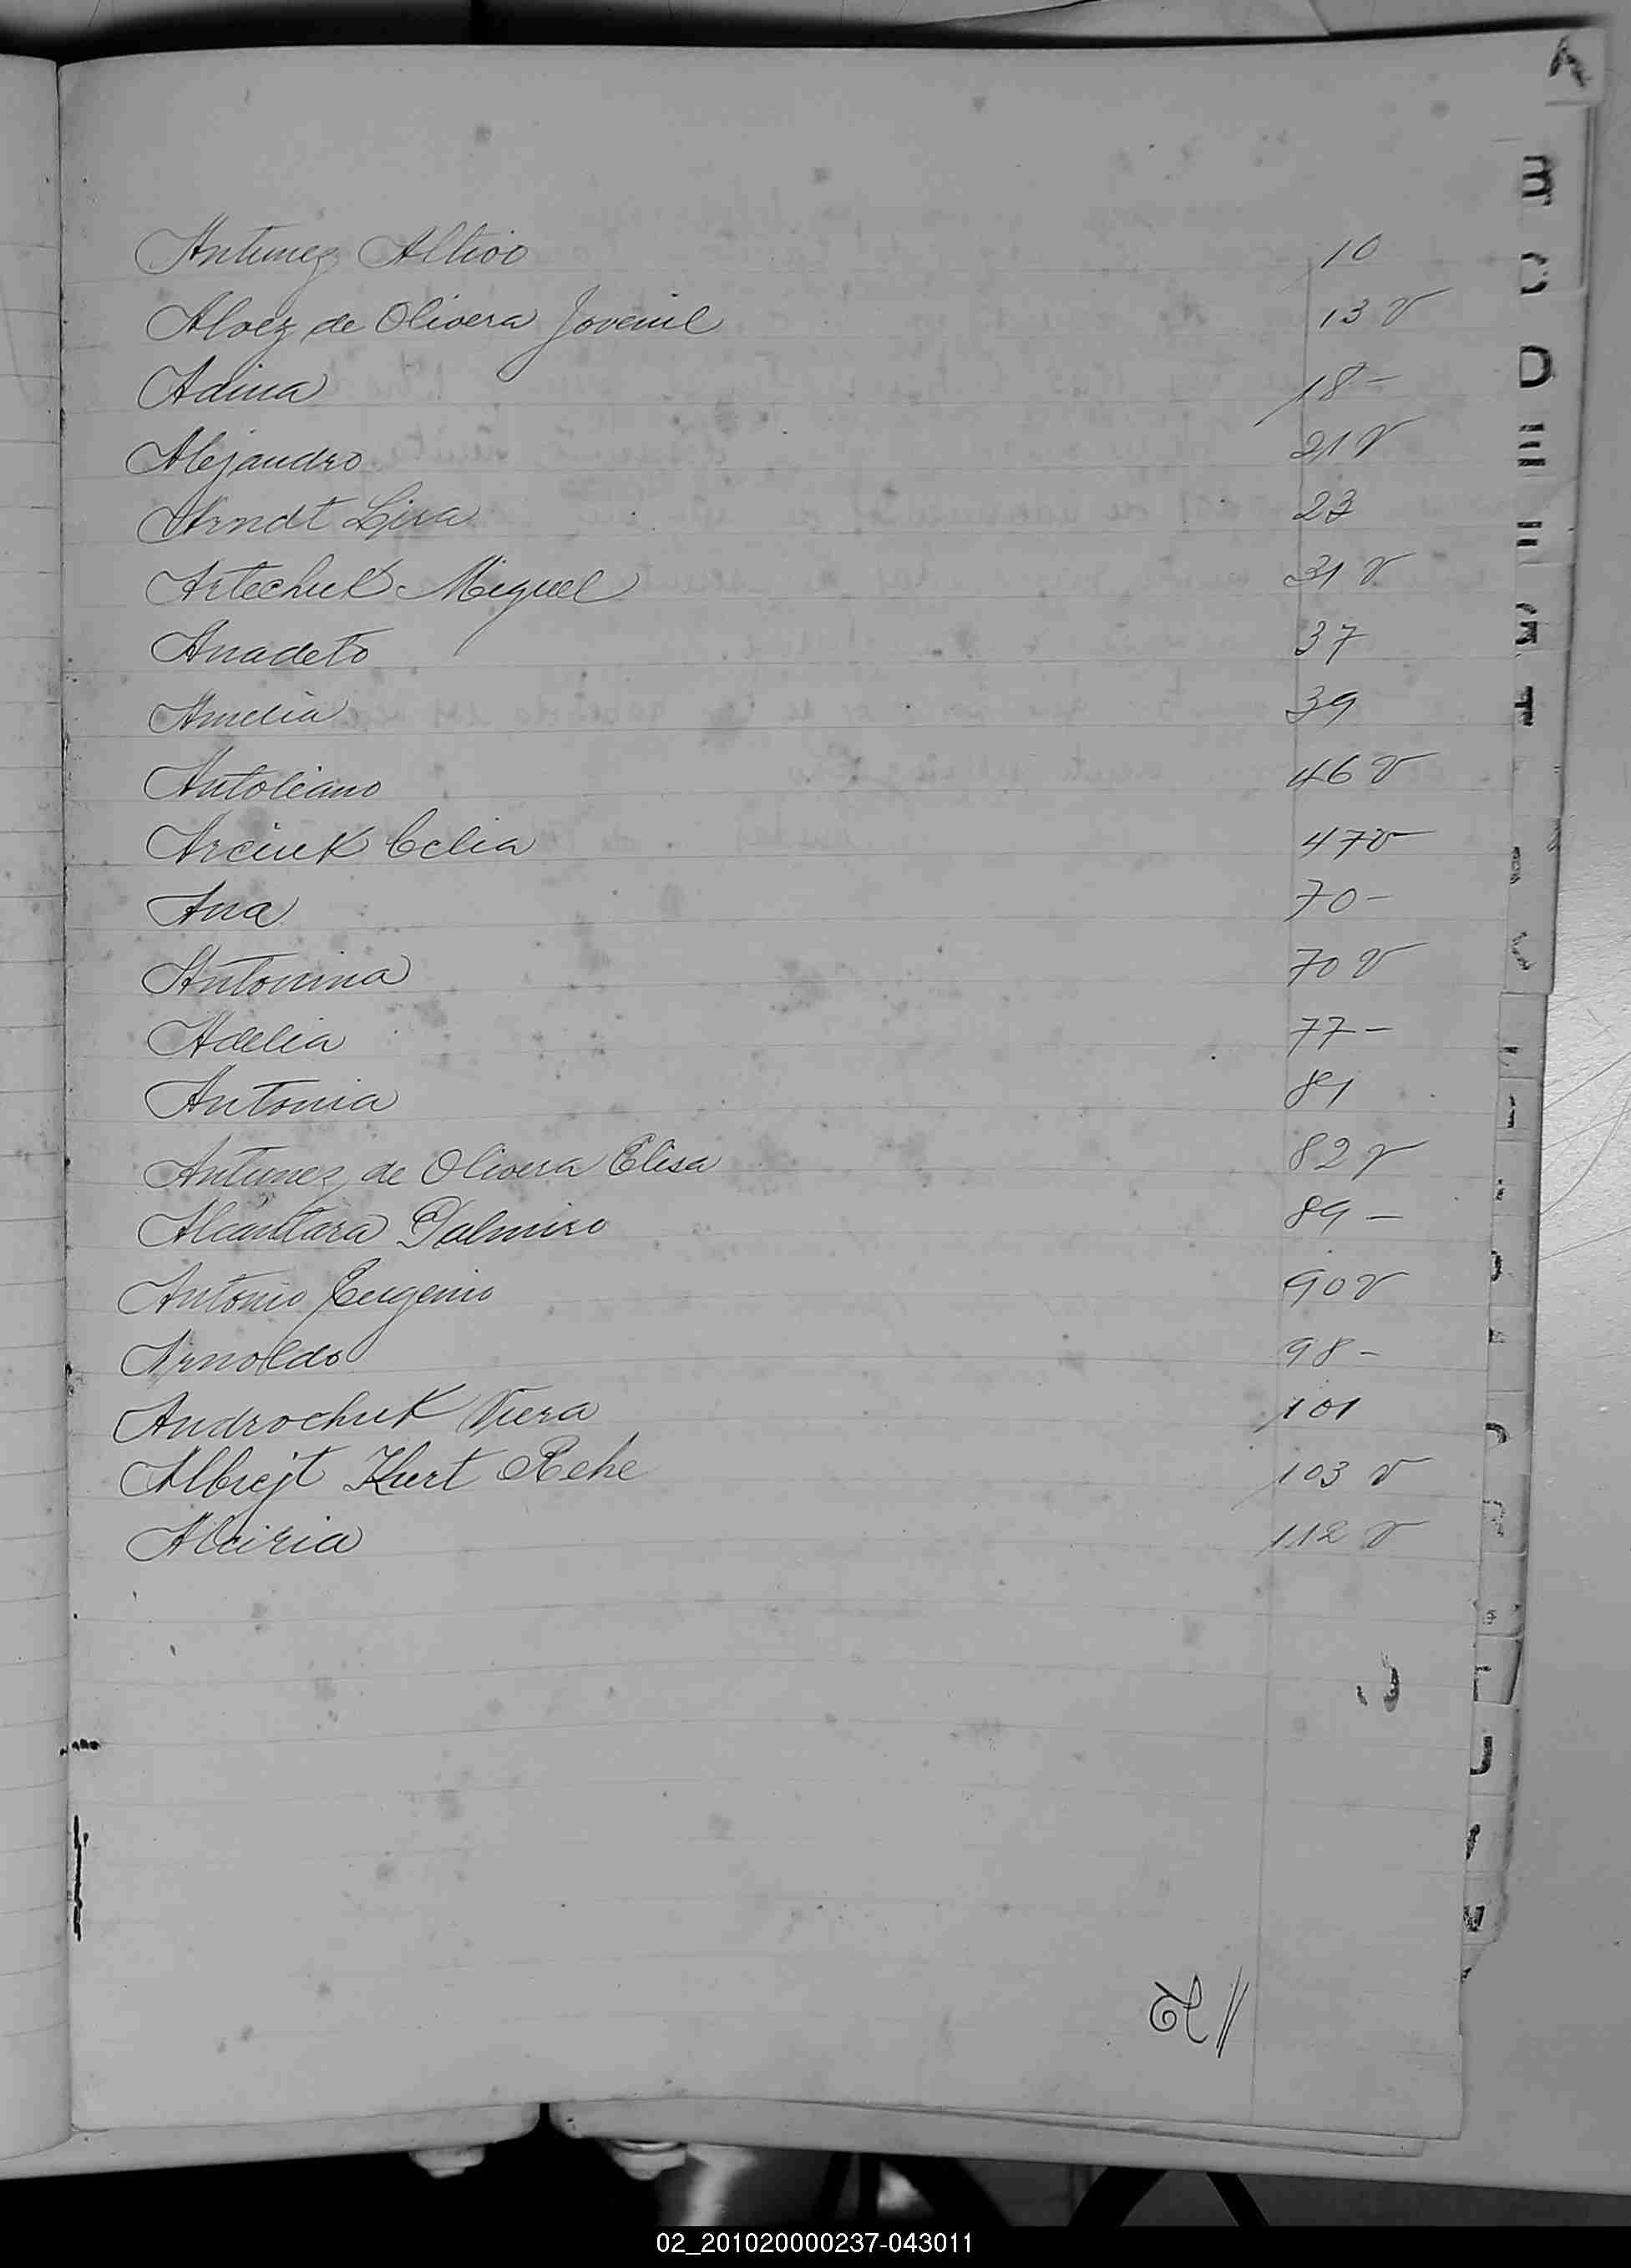 A
Antunez Altivo 10
Alvez de Olivera Jovenil 13 v
Adina 18 -
Alejandro 21 v
Arndt Lisa 23
Artechuk Miguel 31 v
Anacleto 37
Amelia 39
Antoliano 46 v
Arciuk Celia 47 v
Ana 70 -
Antonina 70 v
Adelia 77 -
Antonia 81
Antunez de Olivera Elisa 82 v
Alcántara Dalmiro 89 -
Antonio Eugenio 90 v
Arnoldo 98 -
Androchuk Viera 101
Albrejt Kurt Rehe 103 v
Alciria 112 v
B
C
D
02_201020000237-043011